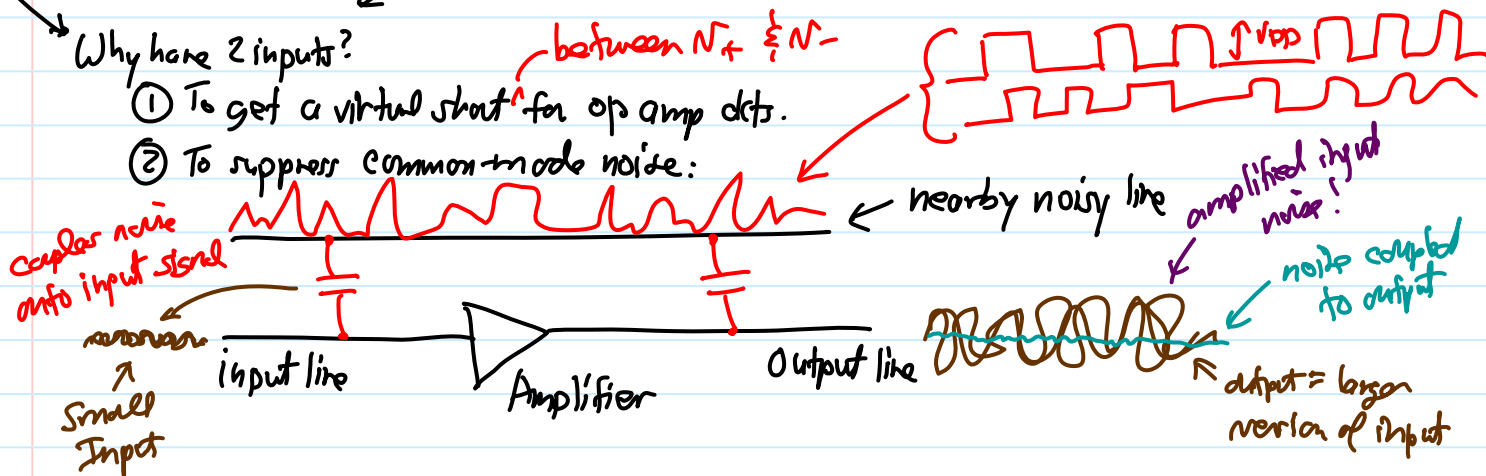 Why have 2 inputs?
between N+ & N-
VDD
① To get a virtual short ^ for op amp ckts.
② To suppress common-mode noise:
nearby noisy line
amplified input
noise!
couples noise
onto input signal
noise coupled
to output
input line
Amplifier
Output line
Small
Input
output = larger
version of input